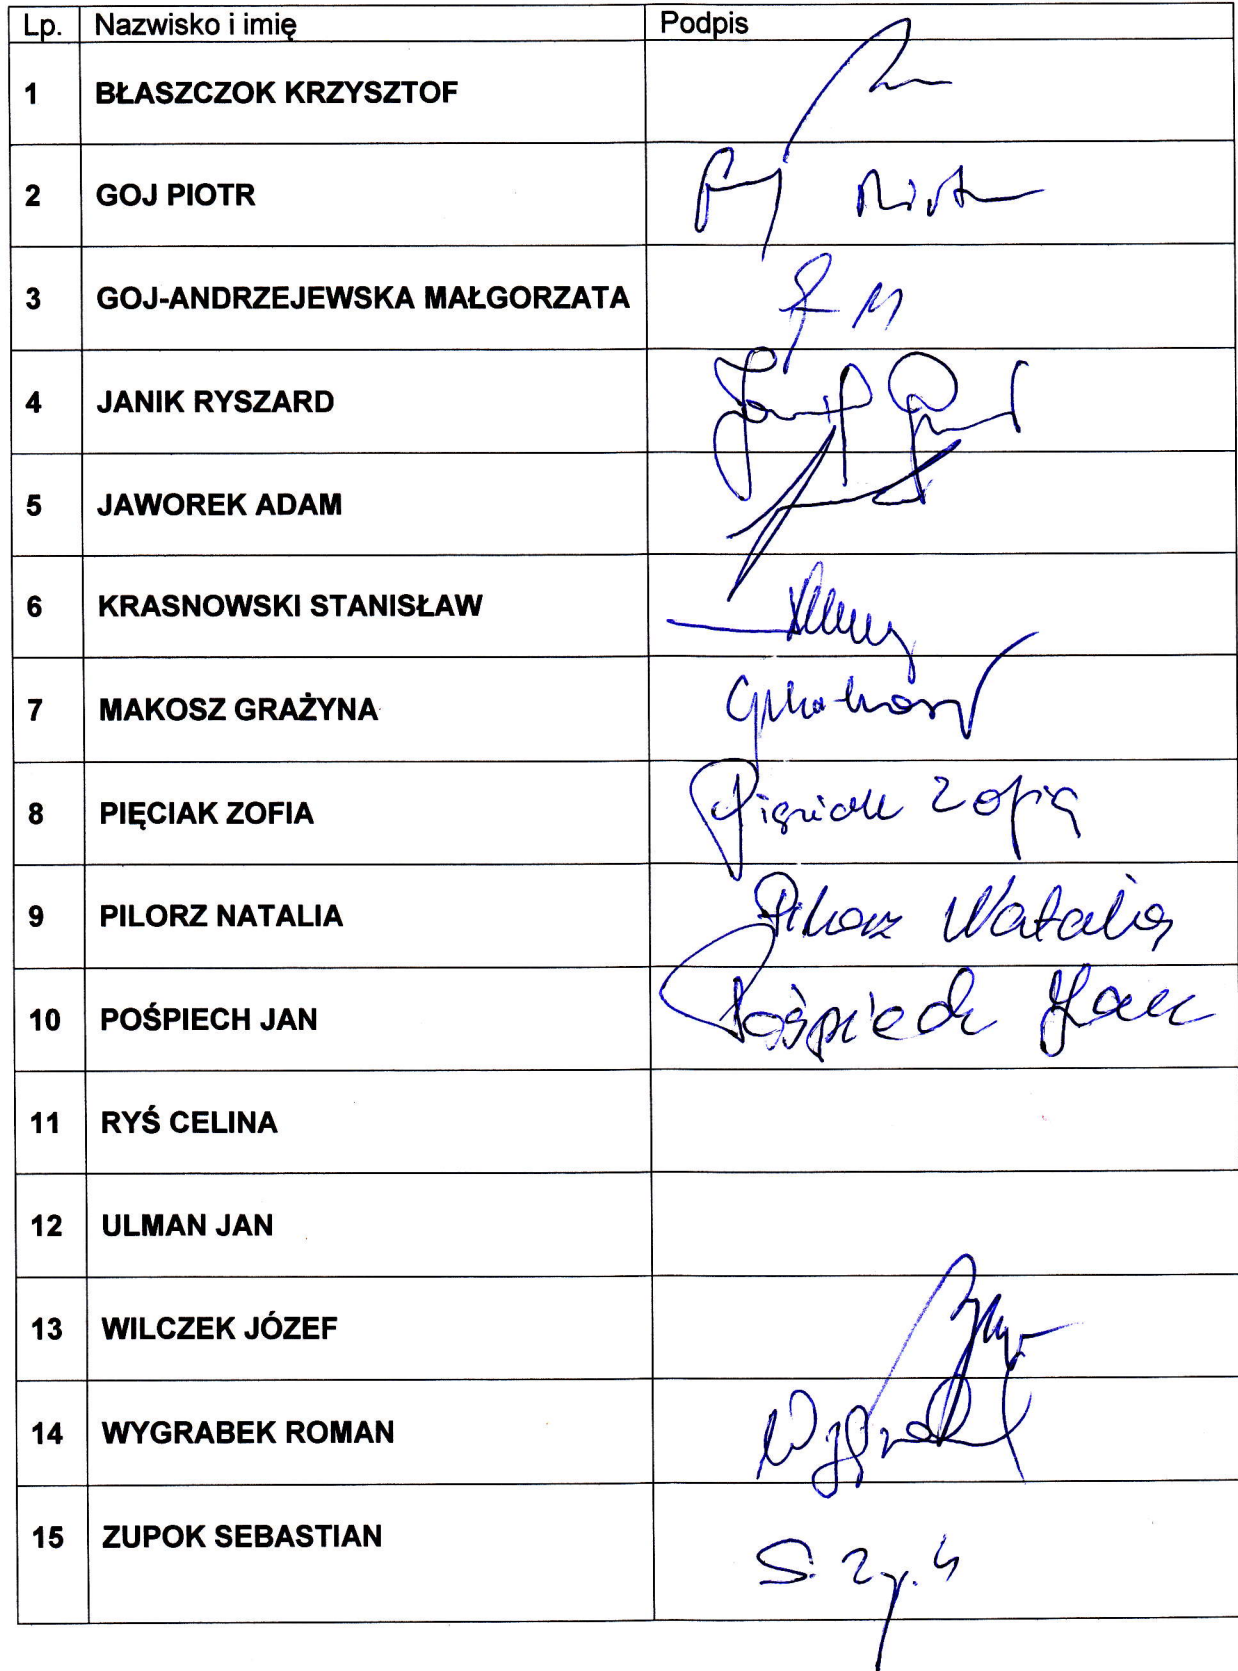 Lp. Nazwisko i imię Podpis
1 BŁASZCZOK KRZYSZTOF
2 GOJ PIOTR Goj Piotr
3 GOJ-ANDRZEJEWSKA MAŁGORZATA
4 JANIK RYSZARD
5 JAWOREK ADAM
6 KRASNOWSKI STANISŁAW
7 MAKOSZ GRAŻYNA GMakosz
8 PIĘCIAK ZOFIA Pięciak Zofia
9 PILORZ NATALIA Pilorz Natalia
10 POŚPIECH JAN Pośpiech Jan
11 RYŚ CELINA
12 ULMAN JAN
13 WILCZEK JÓZEF
14 WYGRABEK ROMAN
15 ZUPOK SEBASTIAN